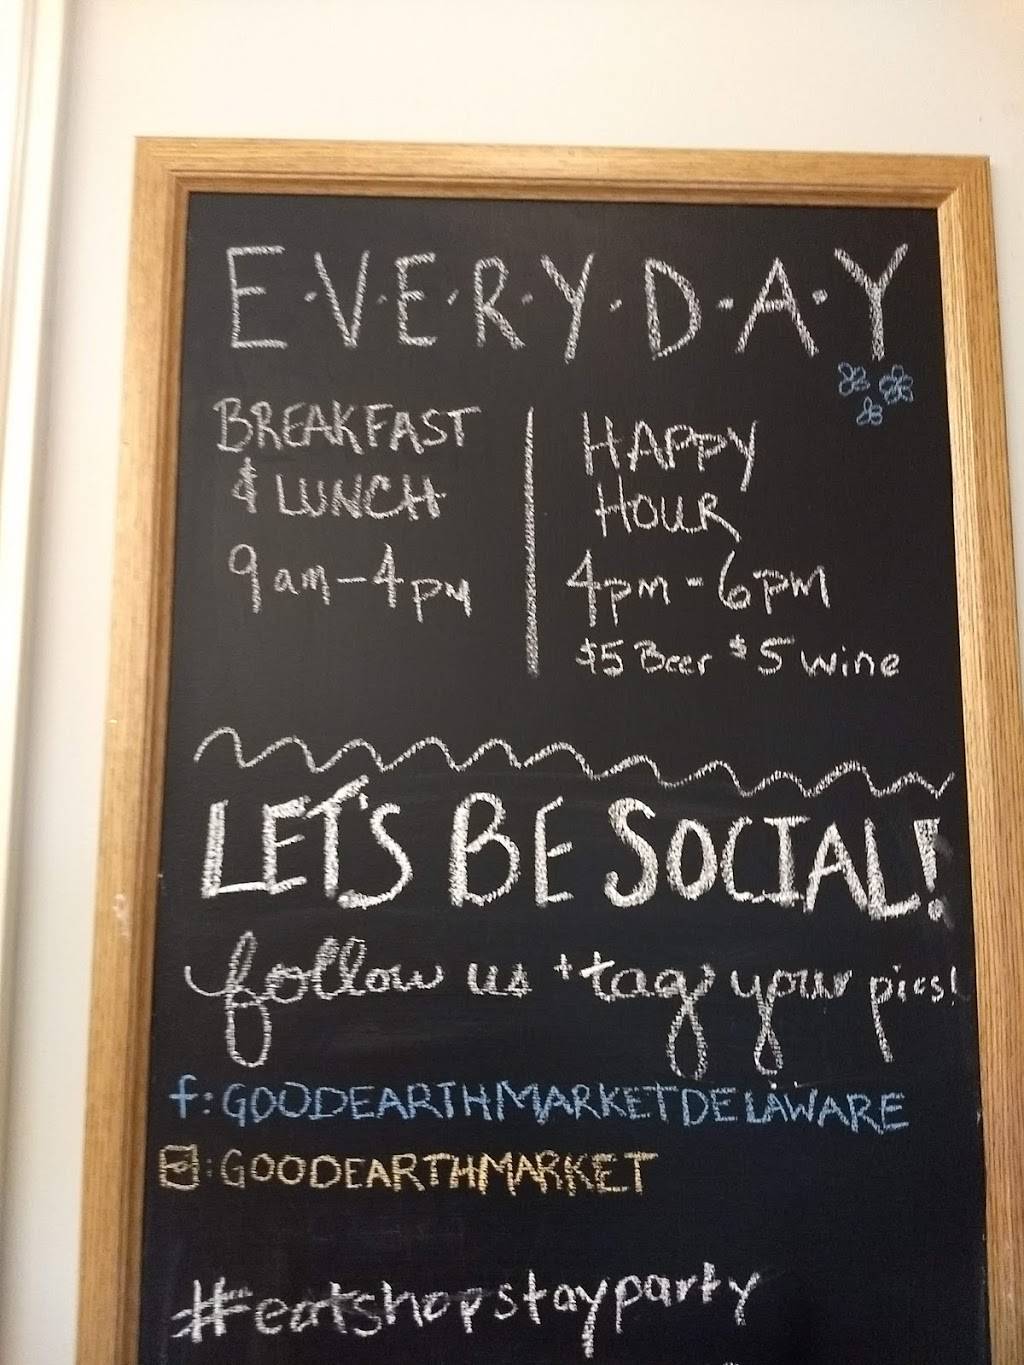 E·V·E·R·Y·D·A·Y
BREAKFAST
& LUNCH
9am-4pm
HAPPY
HOUR
4pm-6pm
$5 Beer $5 wine
LET'S BE SOCIAL!
follow us + tag your pics!
f: GOODEARTHMARKETDELAWARE
: GOODEARTHMARKET
#eatshopstayparty